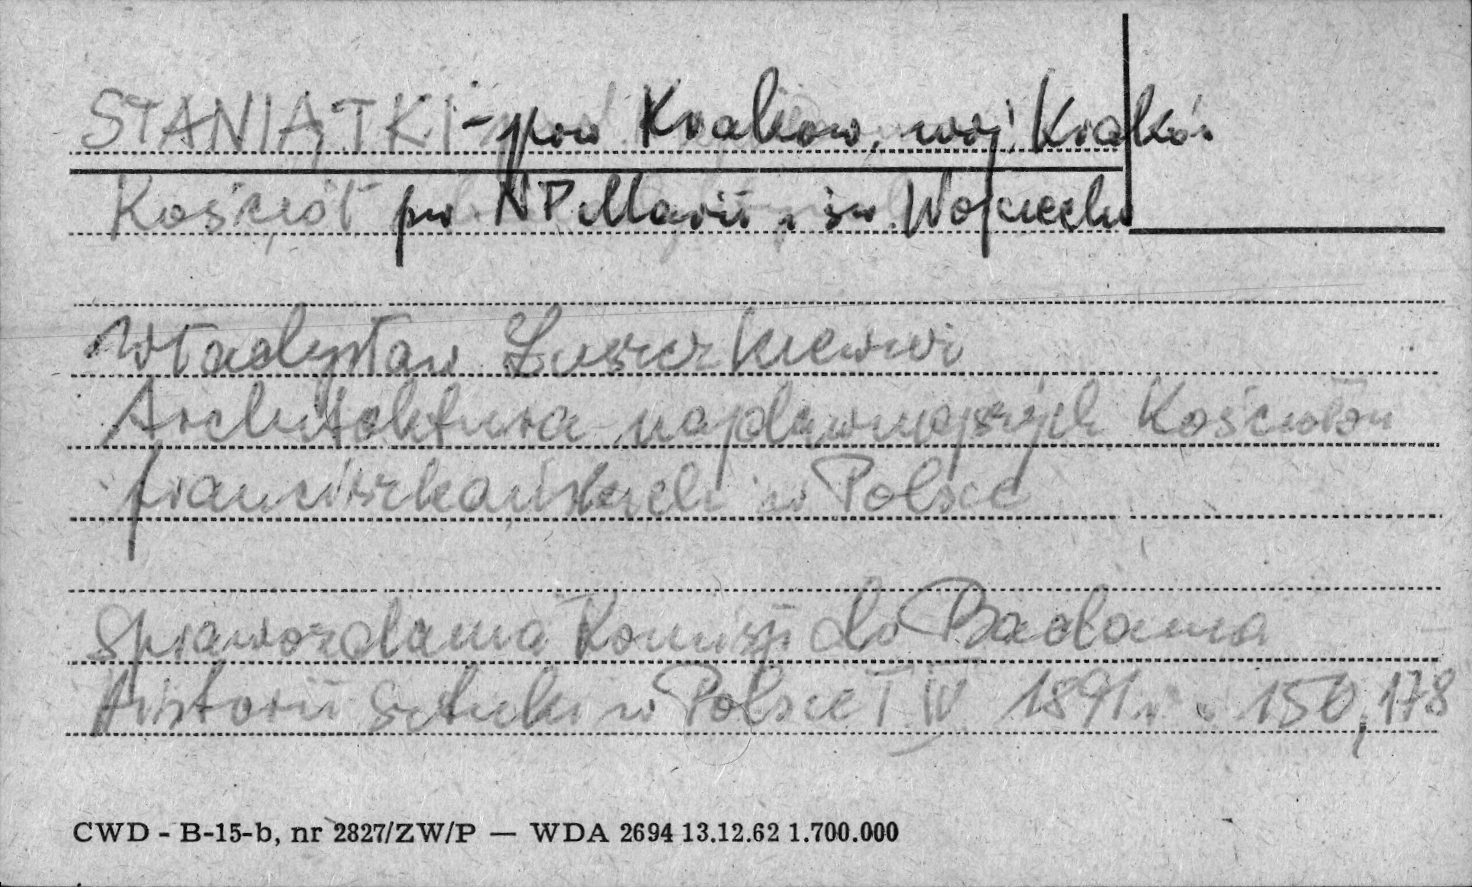 STANIĄTKI - pow Kraków, woj. Kraków
Kościół pw NP Marii i św Wojciecha
Władysław Łuszczkiewicz
Architektura najdawniejszych Kościołów
franciszkańskich w Polsce
Sprawozdania Komisji do Badania
Historii Sztuki w Polsce T IV 1891 r. s. 150, 178
CWD - B-15-b, nr 2827/ZW/P — WDA 2694 13.12.62 1.700.000